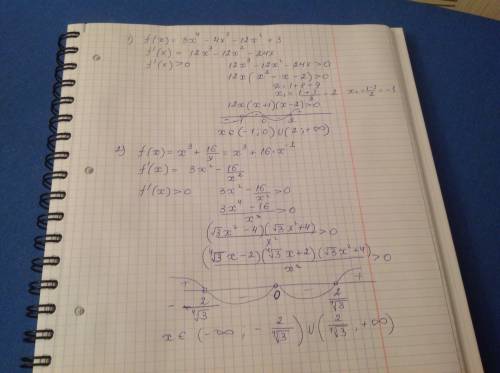 1) f(x) = 3x⁴ - 4x³ - 12x² + 3
f'(x) = 12x³ - 12x² - 24x
f'(x) > 0 12x³ - 12x² - 24x > 0
12x (x² - x - 2) > 0
D = 1 + 8 = 9
x₁ = (1+3)/2 = 2 x₂ = (1-3)/2 = -1
12x(x+1)(x-2) > 0
-1 0 2
x ∈ (-1; 0) ∪ (2; +∞)
2) f(x) = x³ + 16/x = x³ + 16·x⁻¹
f'(x) = 3x² - 16/x²
f'(x) > 0 3x² - 16/x² > 0
(3x⁴ - 16)/x² > 0
(√3x² - 4)(√3x² + 4)/x² > 0
(⁴√3x - 2)(⁴√3x + 2)(√3x² + 4)/x² > 0
+ - - +
-2/⁴√3 0 2/⁴√3
x ∈ (-∞; -2/⁴√3) ∪ (2/⁴√3; +∞)